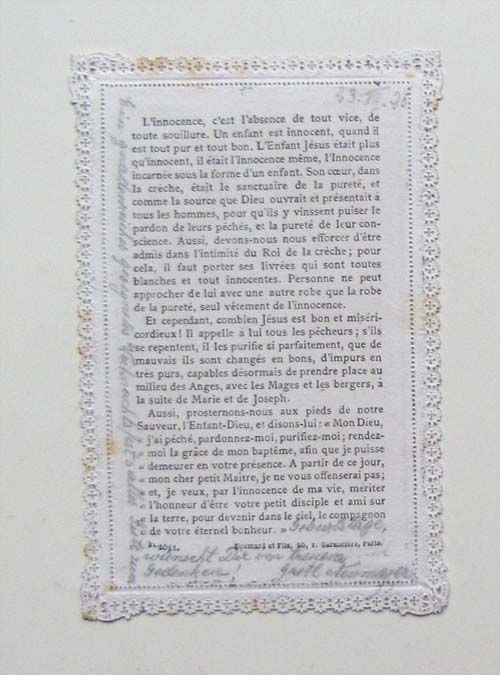 L'innocence, c'est l'absence de tout vice, de
toute souillure. Un enfant est innocent, quand il
est tout pur et tout bon. L'Enfant Jésus était plus
qu'innocent, il était l'Innocence même, l'Innocence
incarnée sous la forme d'un enfant. Son cœur, dans
la crèche, était le sanctuaire de la pureté, et
comme la source que Dieu ouvrait et présentait à
tous les hommes, pour qu'ils y vinssent puiser le
pardon de leurs péchés, et la pureté de leur con-
science. Aussi, devons-nous nous efforcer d'être
admis dans l'intimité du Roi de la crèche; pour
cela, il faut porter ses livrées qui sont toutes
blanches et tout innocentes. Personne ne peut
approcher de lui avec une autre robe que la robe
de la pureté, seul vêtement de l'innocence.
Et cependant, combien Jésus est bon et miséri-
cordieux! Il appelle à lui tous les pécheurs; s'ils
se repentent, il les purifie si parfaitement, que de
mauvais ils sont changés en bons, d'impurs en
très purs, capables désormais de prendre place au
milieu des Anges, avec les Mages et les bergers, à
la suite de Marie et de Joseph.
Aussi, prosternons-nous aux pieds de notre
Sauveur, l'Enfant-Dieu, et disons-lui: « Mon Dieu,
« j'ai péché, pardonnez-moi, purifiez-moi; rendez-
« moi la grâce de mon baptême, afin que je puisse
« demeurer en votre présence. A partir de ce jour,
« mon cher petit Maître, je ne vous offenserai pas;
« et, je veux, par l'innocence de ma vie, mériter
« l'honneur d'être votre petit disciple et ami sur
« la terre, pour devenir dans le ciel, le compagnon
« de votre éternel bonheur. » Geburtstage,
Boumard et Fils, Paris.
wünscht Dir von
Gedenken, Gretl